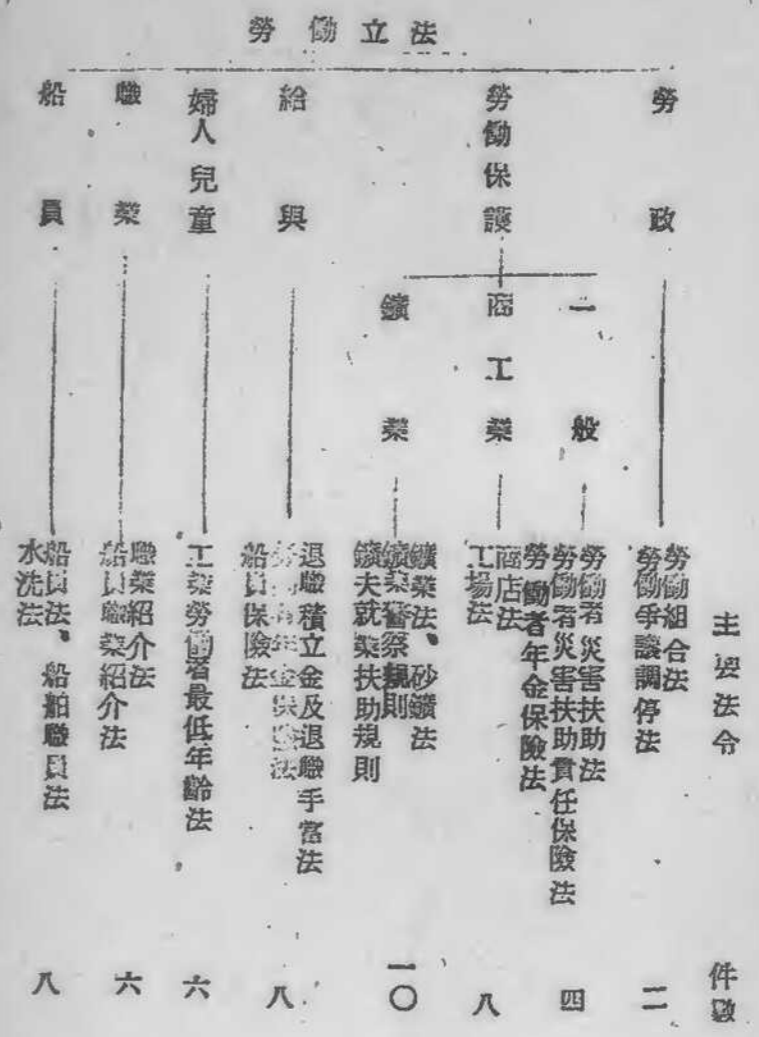 勞働立法
主要法令
件數
勞政
勞働組合法
勞働爭議調停法
二
勞働保護
一般
勞働者災害扶助法
勞働者災害扶助責任保險法
勞働者年金保險法
四
商工業
商店法
工場法
八
鑛業
鑛業法、砂鑛法
鑛業警察規則
鑛夫就業扶助規則
一〇
給與
退職積立金及退職手當法
勞働者年金保險法
船員保險法
八
婦人兒童
工業勞働者最低年齡法
六
職業
職業紹介法
船員職業紹介法
六
船員
船員法、船舶職員法
水洗法
八